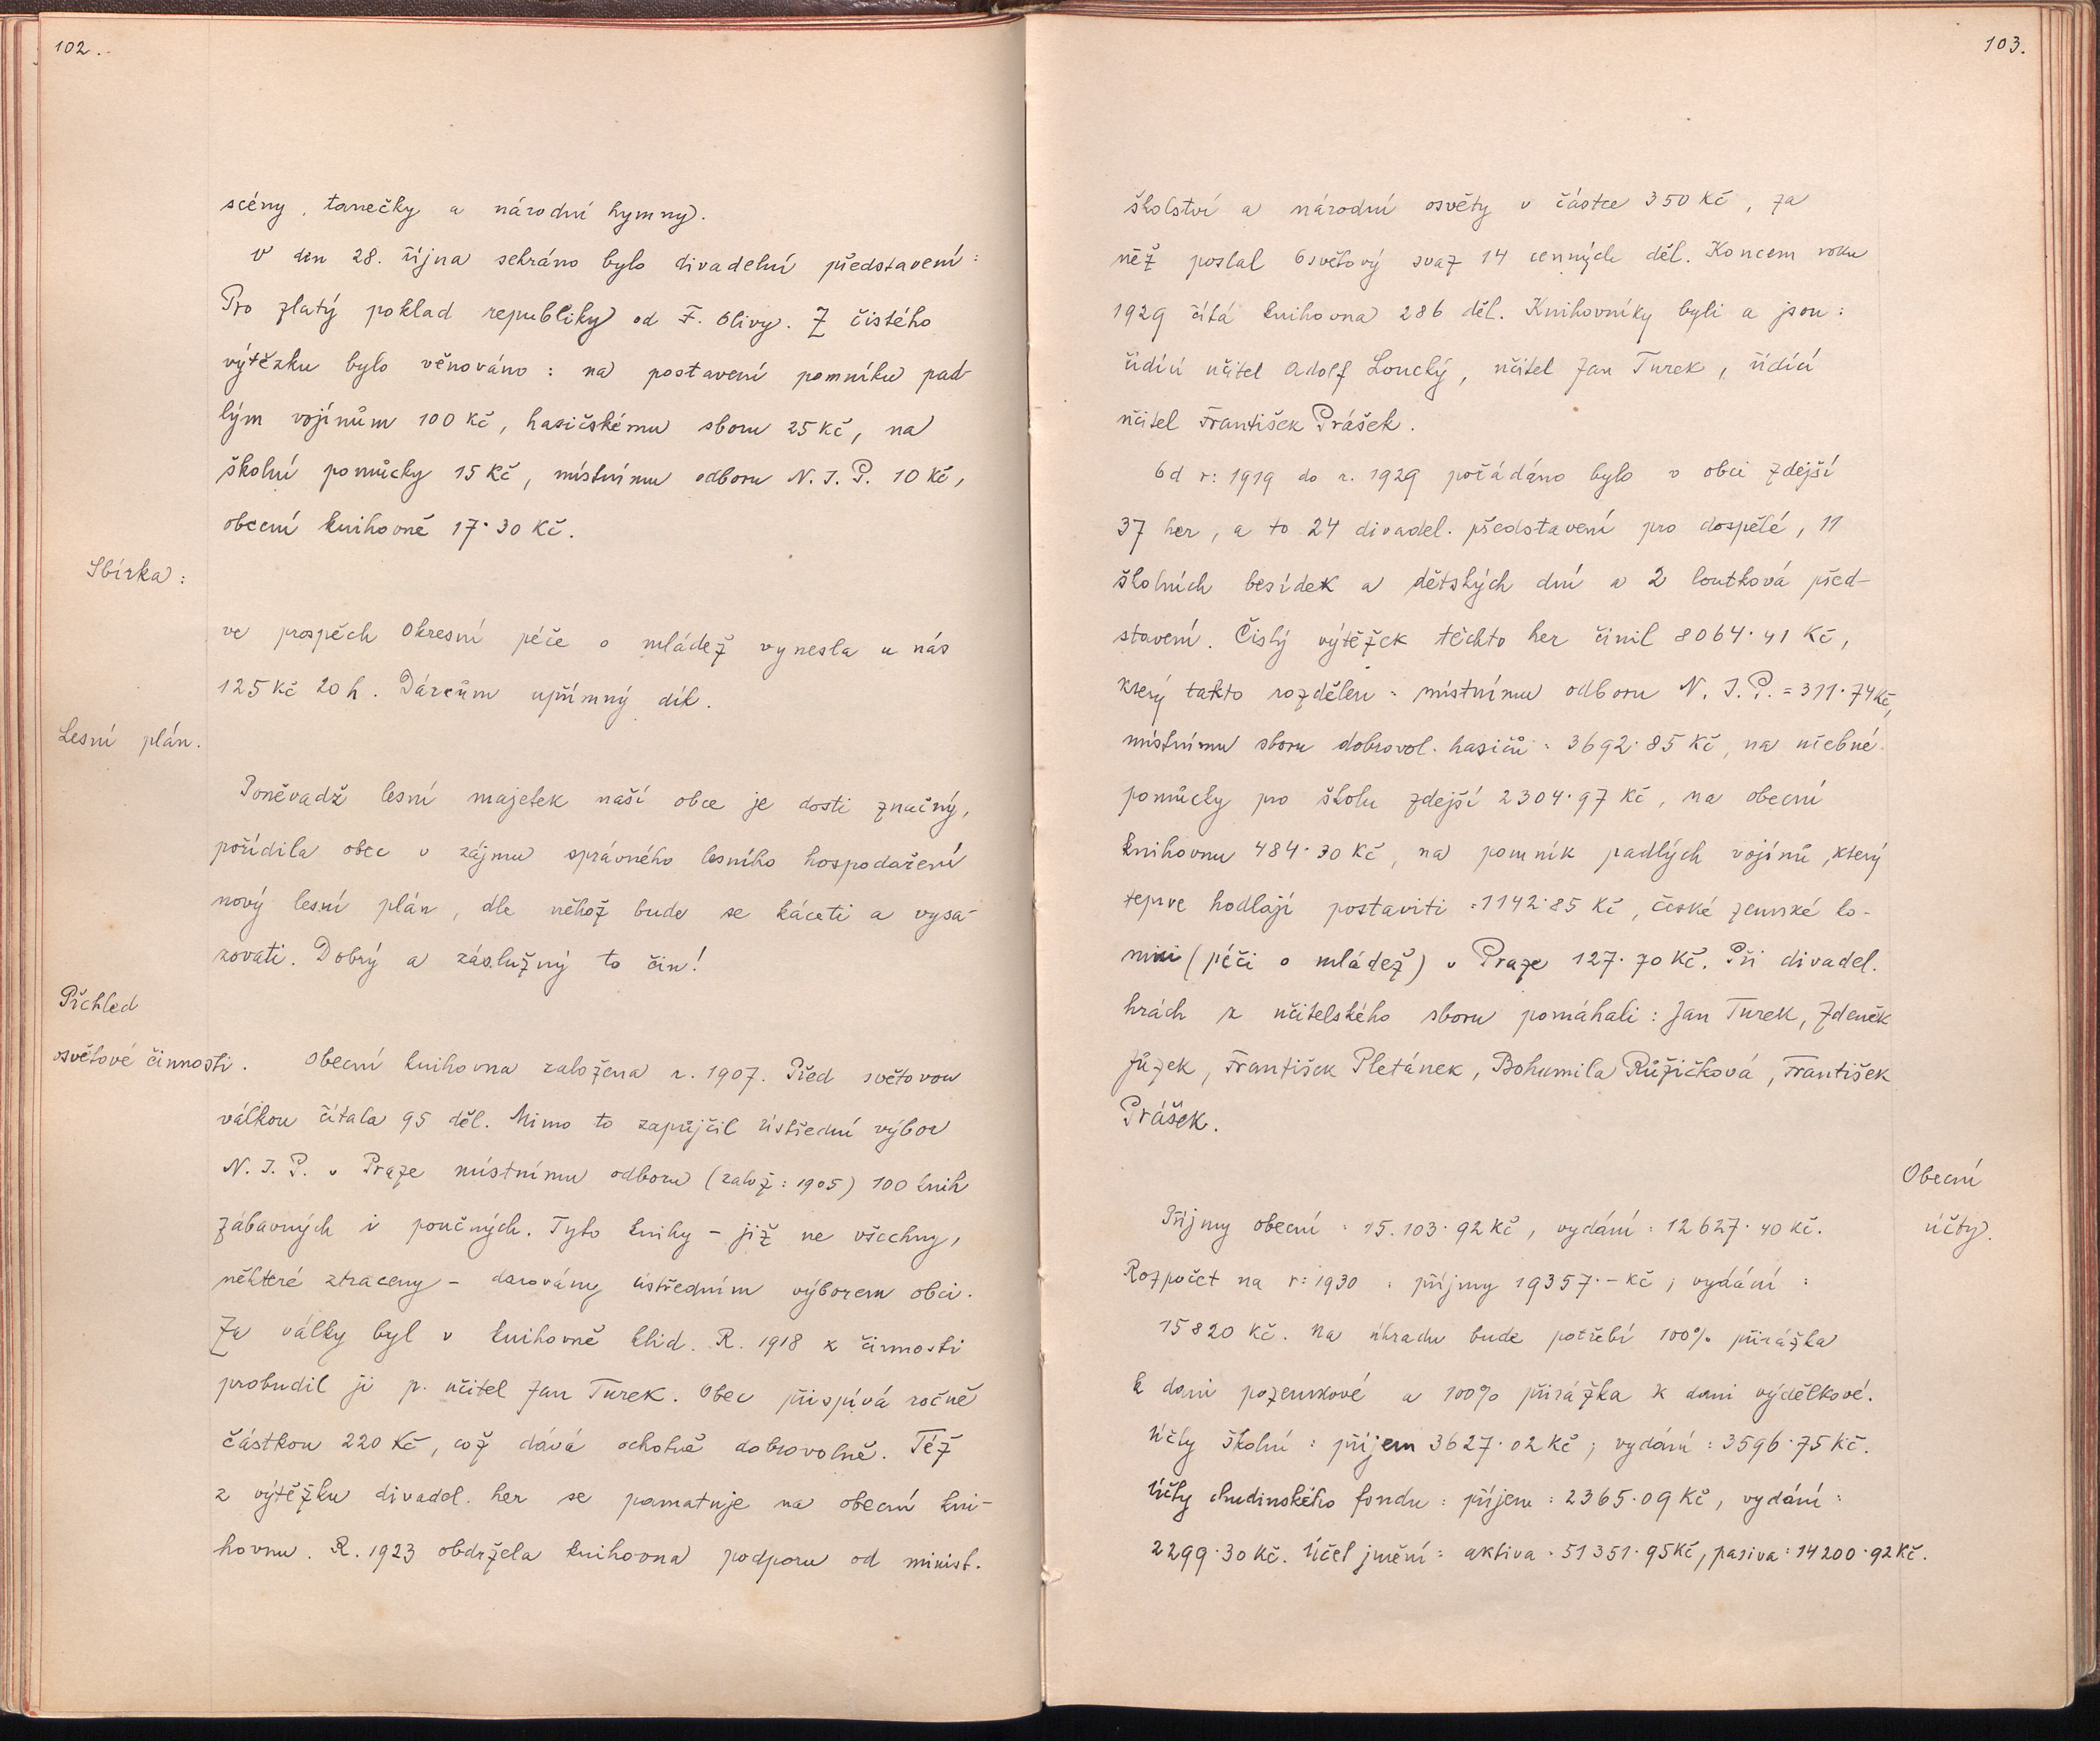 102.
scény, tanečky a národní hymny.
V den 28. října sehráno bylo divadelní představení:
Pro zlatý poklad republiky od F. Olivy. Z čistého
výtěžku bylo věnováno: na postavení pomníku pad-
lým vojínům 100 Kč, hasičskému sboru 25 Kč, na
školní pomůcky 15 Kč, místnímu odboru N. J. P. 10 Kč,
obecní knihovně 17·30 Kč.
Sbírka:
ve prospěch Okresní péče o mládež vynesla u nás
125 Kč 20 h. Dárcům upřímný dík.
Lesní plán.
Poněvadž lesní majetek naší obce je dosti značný,
pořídila obec v zájmu správného lesního hospodaření
nový lesní plán, dle něhož bude se káceti a vysa-
zovati. Dobrý a záslužný to čin!
Přehled
osvětové činnosti. Obecní knihovna založena r. 1907. Před světovou
válkou čítala 95 děl. Mimo to zapůjčil ústřední výbor
N. J. P. v Praze místnímu odboru (založ: 1905) 100 knih
zábavných i poučných. Tyto knihy – již ne všechny,
některé ztraceny – darovány ústředním výborem obci.
Za války byl v knihovně klid. R. 1918 k činnosti
probudil ji p. učitel Jan Turek. Obec přispívá ročně
částkou 220 Kč, což dává ochotně dobrovolně. Též
z výtěžku divadel. her se pamatuje na obecní kni-
hovnu. R. 1923 obdržela knihovna podporu od minist.
103.
školství a národní osvěty v částce 350 Kč, za
něž poslal Osvětový svaz 14 cenných děl. Koncem roku
1929 čítá knihovna 286 děl. Knihovníky byli a jsou:
řídící učitel Adolf Loucký, učitel Jan Turek, řídící
učitel František Prášek.
Od r: 1919 do r. 1929 pořádáno bylo v obci zdejší
37 her, a to 24 divadel. představení pro dospělé, 11
školních besídek a dětských dní a 2 loutková před-
stavení. Čistý výtěžek těchto her činil 8064·41 Kč,
který takto rozdělen: místnímu odboru N. J. P. = 311·74 Kč,
místnímu sboru dobrovol. hasičů: 3692·85 Kč, na učebné
pomůcky pro školu zdejší 2304·97 Kč, na obecní
knihovnu 484·30 Kč, na pomník padlých vojínů, který
teprve hodlají postaviti: 1142·85 Kč, české zemské ko-
misi (péči o mládež) v Praze 127·70 Kč. Při divadel.
hrách z učitelského sboru pomáhali: Jan Turek, Zdeněk
Jůzek, František Pletánek, Bohumila Růžičková, František
Prášek.
Obecní
účty.
Příjmy obecní: 15.103·92 Kč, vydání: 12627·40 Kč.
Rozpočet na r: 1930: příjmy 19357·– Kč; vydání:
15820 Kč. Na úhradu bude potřebí 100% přirážka
k dani pozemkové a 100% přirážka k dani výdělkové.
Účty školní: příjem 3627·02 Kč; vydání: 3596·75 Kč.
Účty chudinského fondu: příjem: 2365·09 Kč, vydání:
2299·30 Kč. Účet jmění: aktiva: 51351·95 Kč, pasiva: 14200·92 Kč.